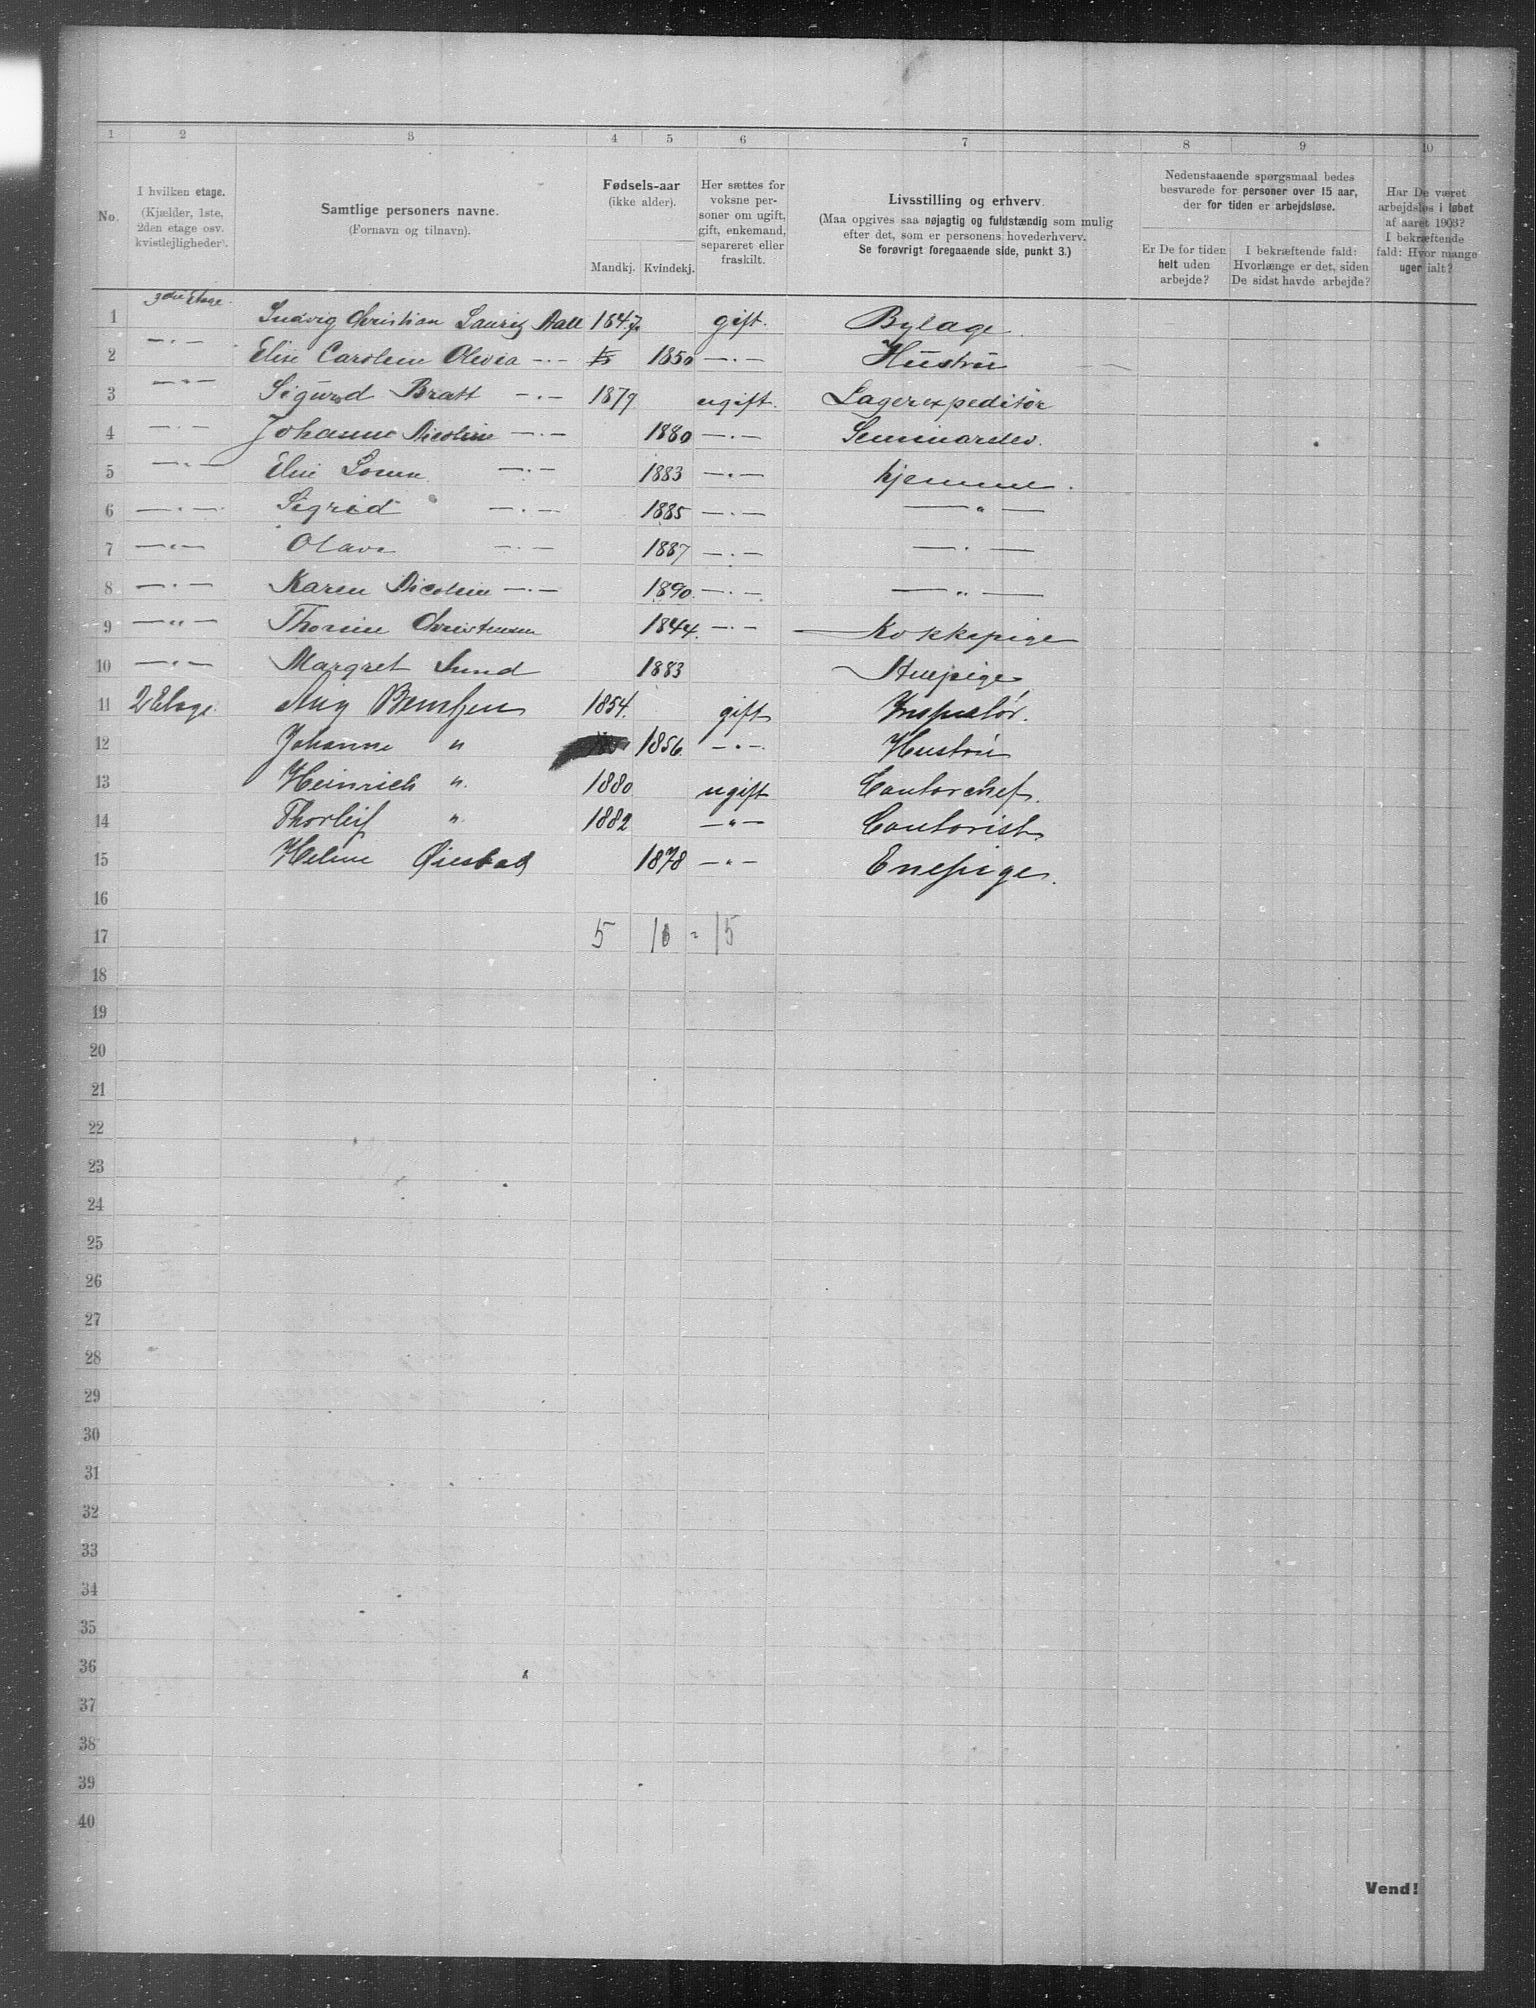 1 2 3 4 5 6 7 8 9 10
No.
I hvilken etage.
(Kjælder, 1ste,
2den etage osv.
kvistleiligheder).
Samtlige personers navne.
(Fornavn og tilnavn).
Fødsels-aar
(ikke alder).
Mandkj. Kvindekj.
Her sættes for
voksne per-
soner om ugift,
gift, enkemand,
separeret eller
fraskilt.
Livsstilling og erhverv.
(Maa opgives saa nøjagtig og fuldstændig som mulig
efter det, som er personens hovederhverv.
Se forøvrigt foregaaende side, punkt 3.)
Nedenstaaende spørgsmaal bedes
besvarede for personer over 15 aar,
der for tiden er arbejdsløse.
Er De for tiden
helt uden
arbejde?
I bekræftende fald:
Hvorlænge er det, siden
De sidst havde arbejde?
Har De været
arbejdsløs i løbet
af aaret 1903?
I bekræftende
fald: Hvor mange
uger ialt?
1 3die Etage. Ludvig Christian Lauritz Aall 1847 gift. Bylæge
2 —"— Elise Caroline Olivia —"— 1850 —"— Hustru
3 —"— Sigurd Bratt —"— 1879 ugift. Lagerexpeditør
4 —"— Johanne Nicoline —"— 1880 —"— Seminarelev.
5 —"— Elise —"— 1883 —"— hjemme.
6 —"— Sigrid —"— 1885 —"— —"—
7 —"— —"— 1887 —"— —"—
8 —"— Karen Nicoline —"— 1890 —"— —"—
9 —"— Thorine Christensen 1844. —"— Kokkepige
10 —"— Margret Lund 1883 Stuepige
11 2 Etage. Berntzen 1854. gift Inspektør.
12 Johanne " 1856 —"— Hustru
13 Heinrich " 1880 ugift Contorchef.
14 Thorleif " 1882 —"— Contorist
15 Helene Øiestad 1878 —"— Enepige.
16
17 5 10 = 15
18
19
20
21
22
23
24
25
26
27
28
29
30
31
32
33
34
35
36
37
38
39
40
Vend!